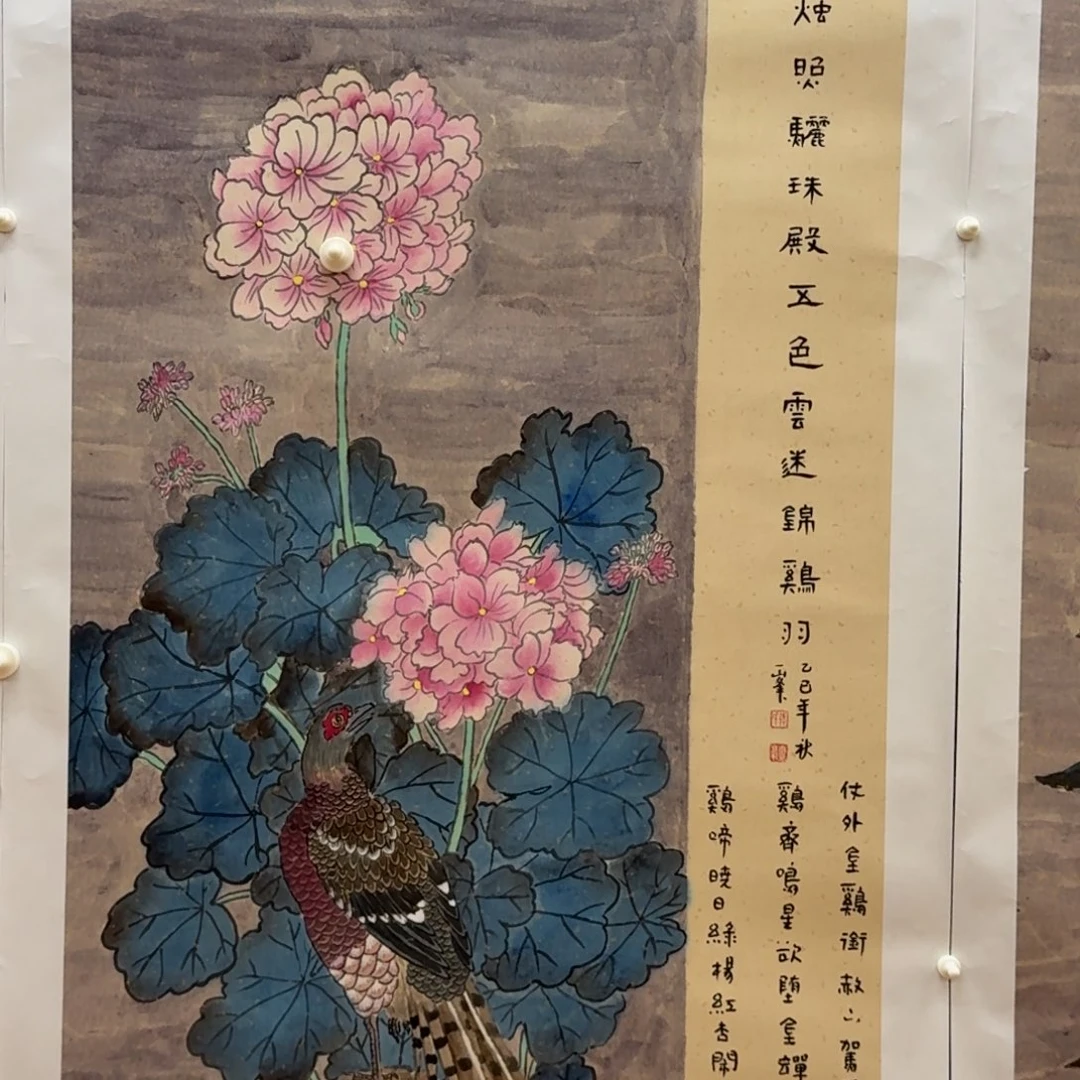 烛照驪珠殿五色雲迷錦鷄羽
乙巳年秋
仗外金鷄銜赦
鷄齊鳴星欲墮金
鷄啼曉日綠楊紅杏閑